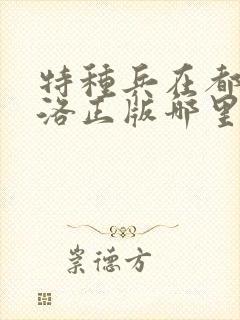 特種兵在都
洛正版哪里
崇德方